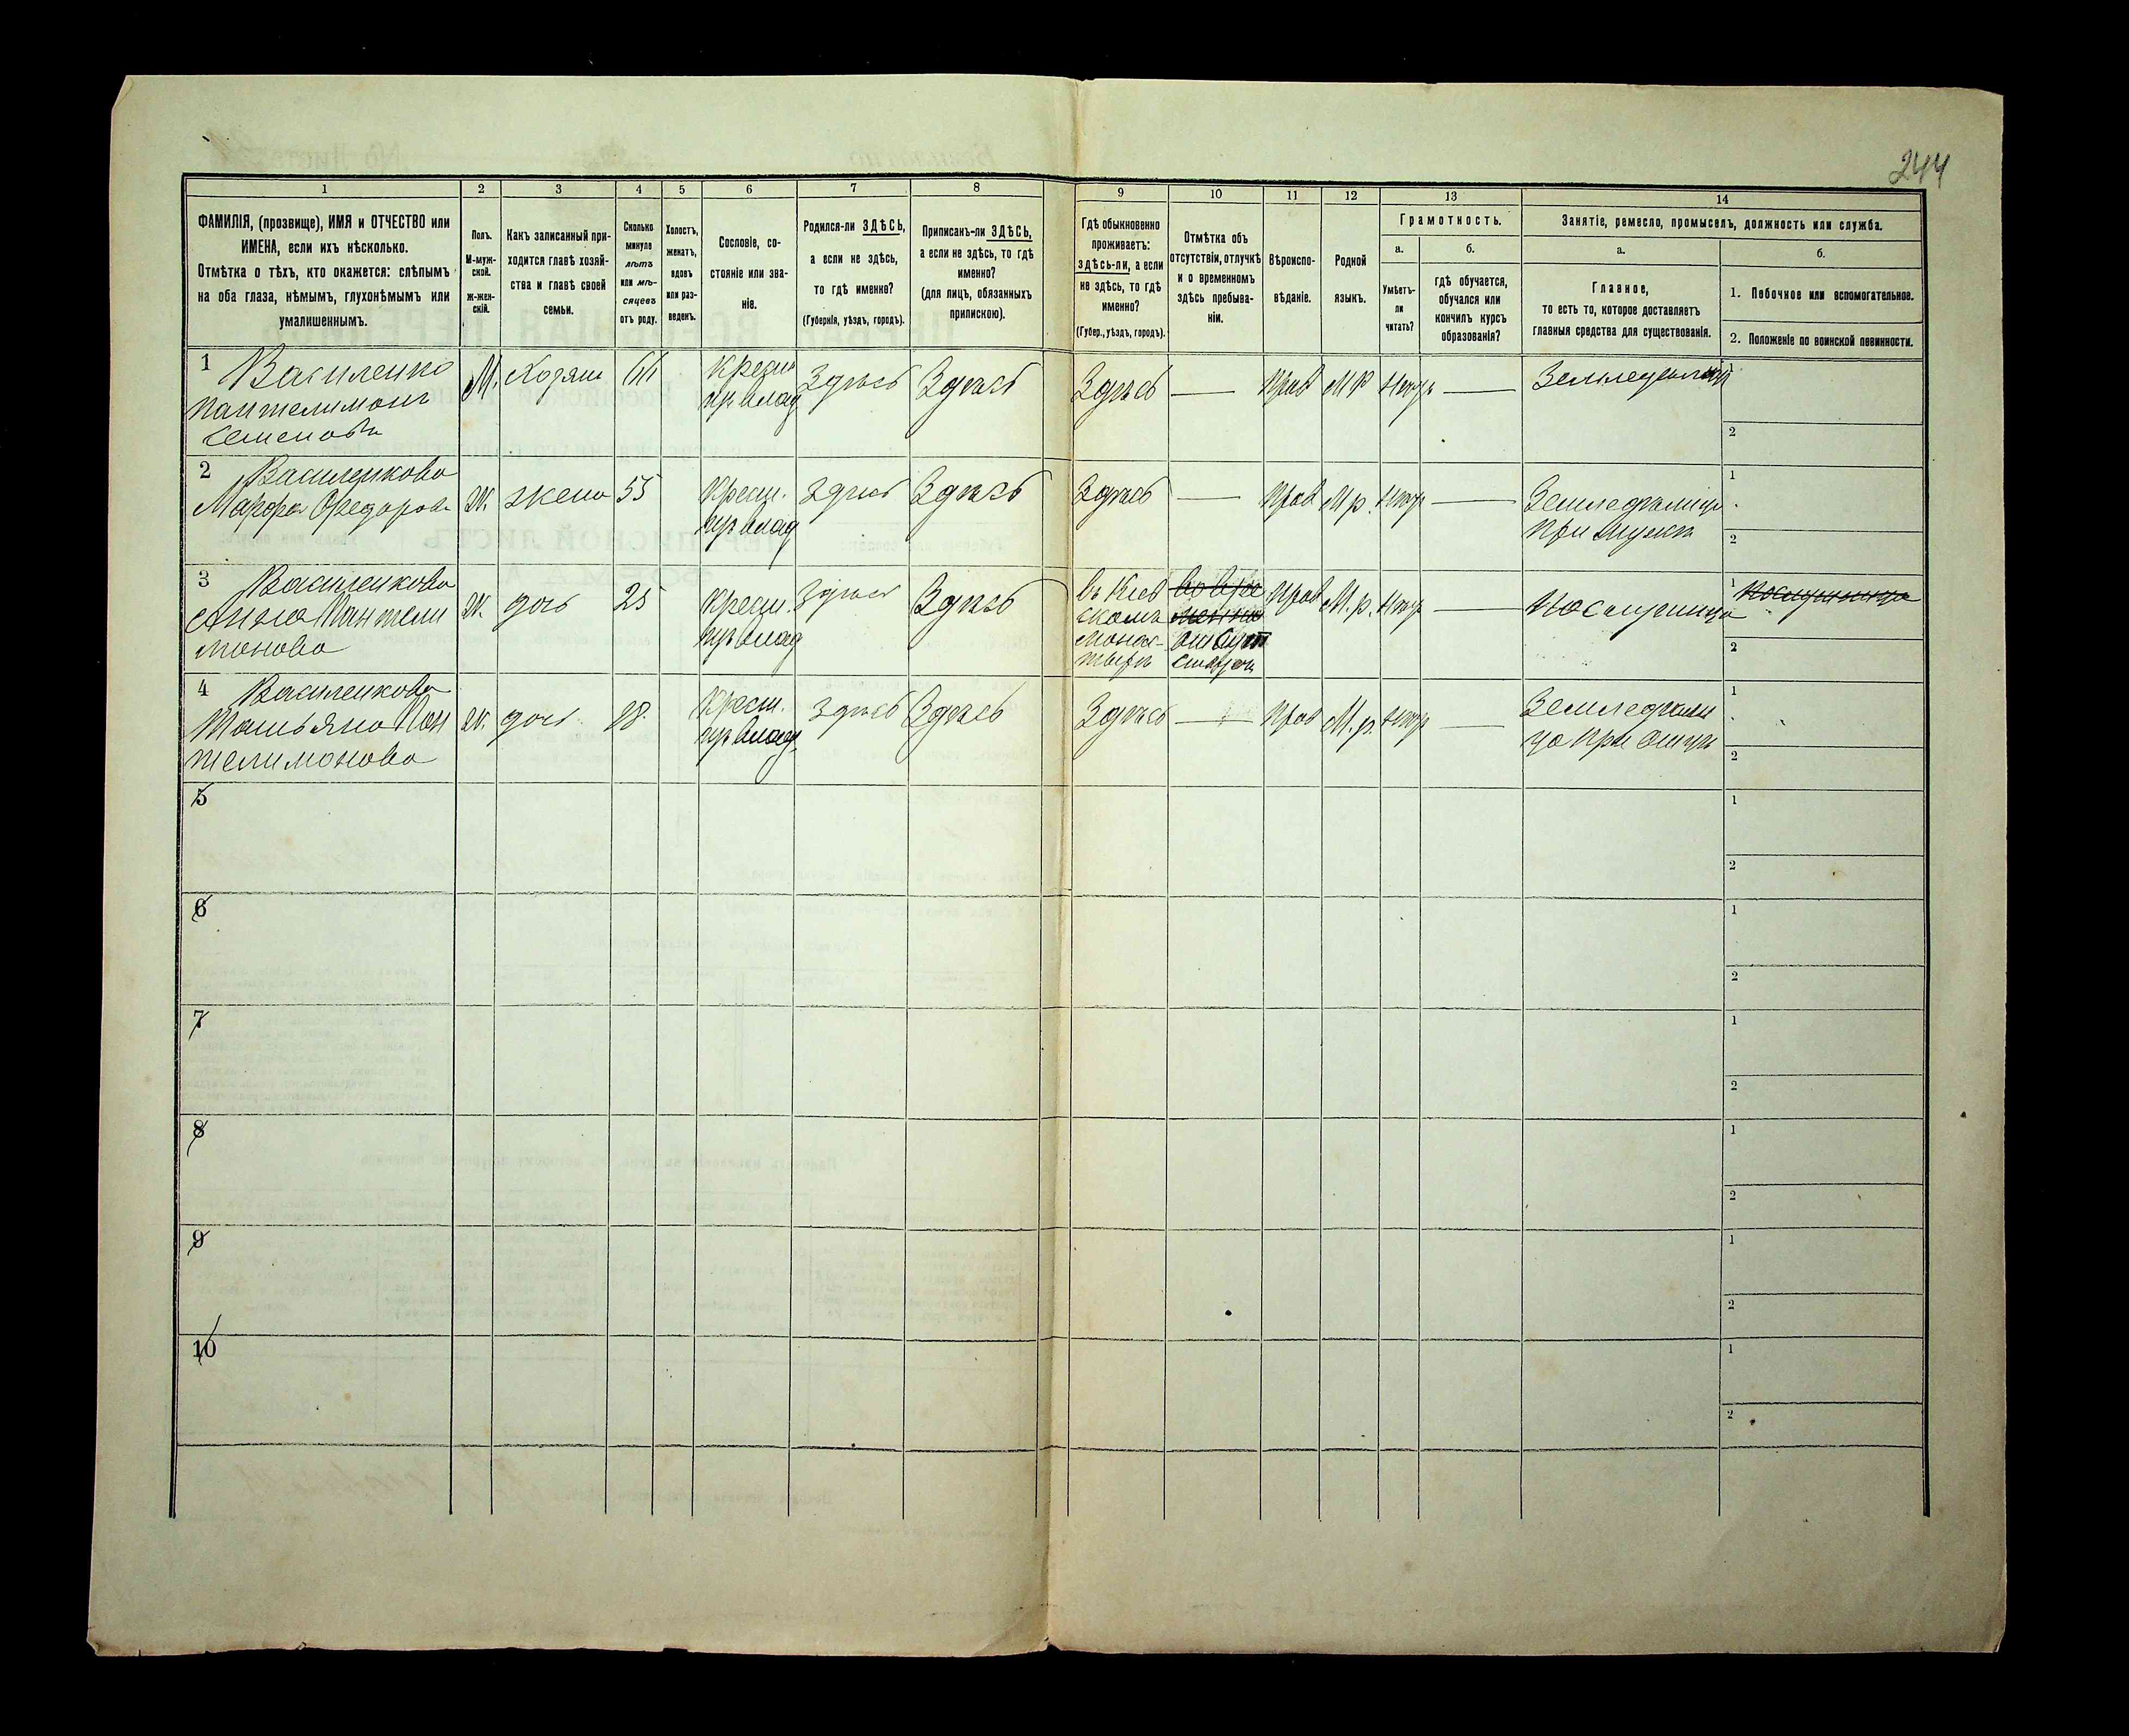 244
1
2
3
4
5
6
7
8
9
10
11
12
13
14
ФАМИЛІЯ, (прозвище), ИМЯ и ОТЧЕСТВО или
ИМЕНА, если ихъ нѣсколько.
Отмѣтка о тѣхъ, кто окажется: слѣпымъ
на оба глаза, нѣмымъ, глухонѣмымъ или
умалишеннымъ.
Полъ.
М-муж-
ской.
Ж-жен-
скій.
Какъ записанный при-
ходится главѣ хозяй-
ства и главѣ своей
семьи.
Сколько
минуло
лѣтъ
или мѣ-
сяцевъ
отъ роду.
Холостъ,
женатъ,
вдовъ
или раз-
веденъ.
Сословіе, со-
стояніе или зва-
ніе.
Родился-ли ЗДѢСЬ,
а если не здѣсь,
то гдѣ именно?
(Губернія, уѣздъ, городъ).
Приписанъ-ли ЗДѢСЬ,
а если не здѣсь, то гдѣ
именно?
(для лицъ, обязанныхъ
припискою).
Гдѣ обыкновенно
проживаетъ:
здѣсь-ли, а если
не здѣсь, то гдѣ
именно?
(Губер., уѣздъ, городъ).
Отмѣтка объ
отсутствіи, отлучкѣ
и о временномъ
здѣсь пребыва-
ніи.
Вѣроиспо-
вѣданіе.
Родной
языкъ.
Грамотность.
а.
Умѣетъ-
ли
читать?
б.
гдѣ обучается,
обучался или
кончилъ курсъ
образованія?
Занятіе, ремесло, промыселъ, должность или служба.
а.
Главное,
то есть то, которое доставляетъ
главныя средства для существованія.
б.
1. Побочное или вспомогательное.
2. Положеніе по воинской повинности.
1 Василенко
Пантелимонъ
Семеновъ
М. Хозяин
Крест.
Здѣсь Здѣсь
Здѣсь — Прав М р нѣтъ — Земледѣлецъ
1
2
2 Василенкова
Марфа Федорова
Ж. жена 55
Крест.
Здѣсь Здѣсь
Здѣсь — Прав М р. нѣтъ — Земледѣлица
при мужѣ
1
2
3 Василенкова
Анна Пантели
монова
Ж. дочь 25
Крест.
Здѣсь Здѣсь
въ Кіев
скомъ
монас-
тырѣ
Прав М. р. нѣтъ — Послушница
1 Послушница
2
4 Василенкова
Татьяна Пан
телимонова
Ж. дочь 18
Крест.
Здѣсь Здѣсь
Здѣсь — Прав М. р. нѣтъ — Земледѣли
ца при отцѣ
1
2
5
1
2
6
1
2
7
1
2
8
1
2
9
1
2
10
1
2